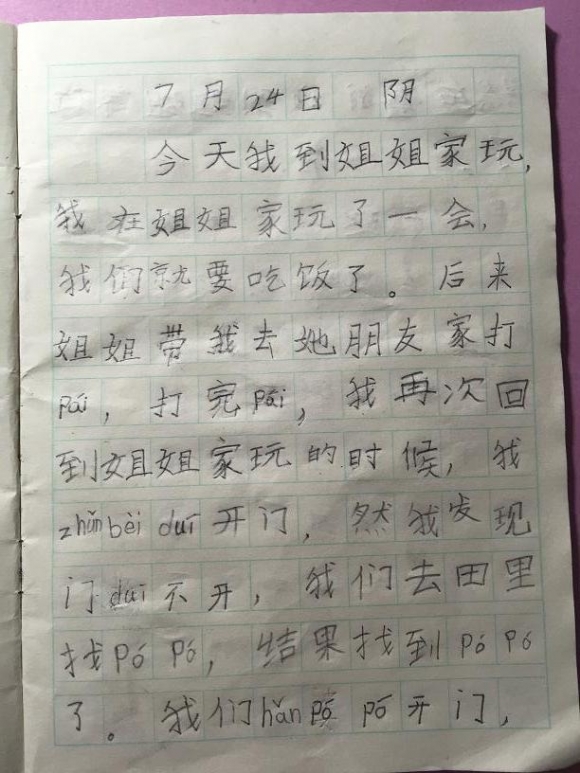 7月24日 阴
今天我到姐姐家玩,
我在姐姐家玩了一会,
我们就要吃饭了。后来
姐姐带我去她朋友家打
pái，打完pái，我再次回
到姐姐家玩的时候，我
zhǔnbèi duī开门，然我发现
门duī不开，我们去田里
找pó pó，结果找到pó pó
了。我们hǎn pó pó开门，